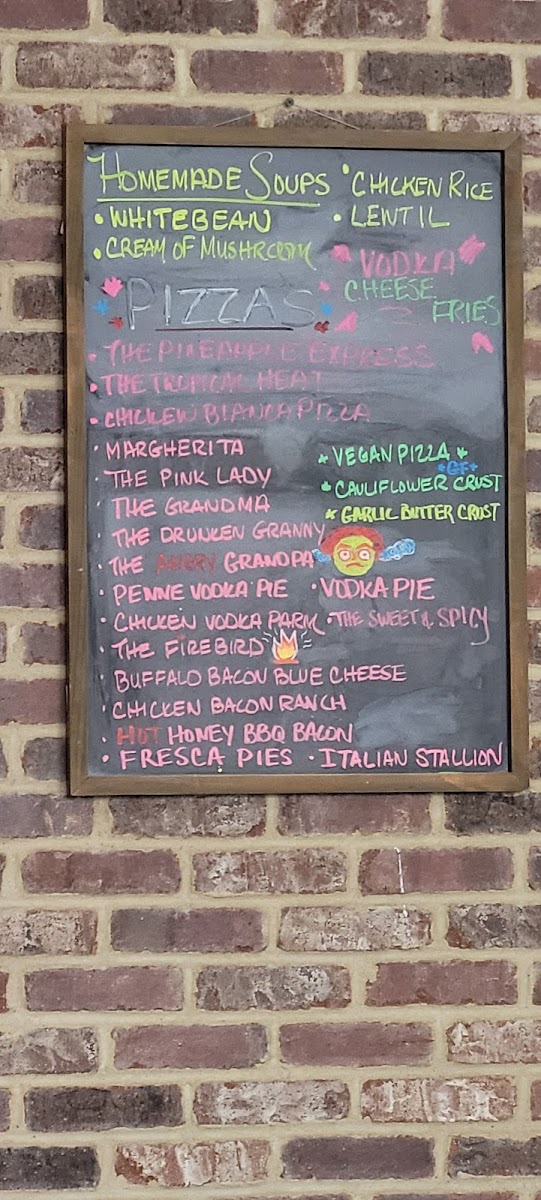 HOMEMADE SOUPS
• CHICKEN RICE
• WHITEBEAN
• LENTIL
• CREAM OF MUSHROOM
VODKA
CHEESE
FRIES
PIZZAS
• THE PINEAPPLE EXPRESS
• THE TROPICAL HEAT
• CHICKEN BIANCA PIZZA
• MARGHERITA
• THE PINK LADY
• THE GRANDMA
• THE DRUNKEN GRANNY
• THE ANGRY GRANDPA
VEGAN PIZZA
GF
CAULIFLOWER CRUST
GARLIC BUTTER CRUST
• PENNE VODKA PIE • VODKA PIE
• CHICKEN VODKA PARM • THE SWEET & SPICY
• THE FIREBIRD
• BUFFALO BACON BLUE CHEESE
• CHICKEN BACON RANCH
• HOT HONEY BBQ BACON
• FRESCA PIES • ITALIAN STALLION